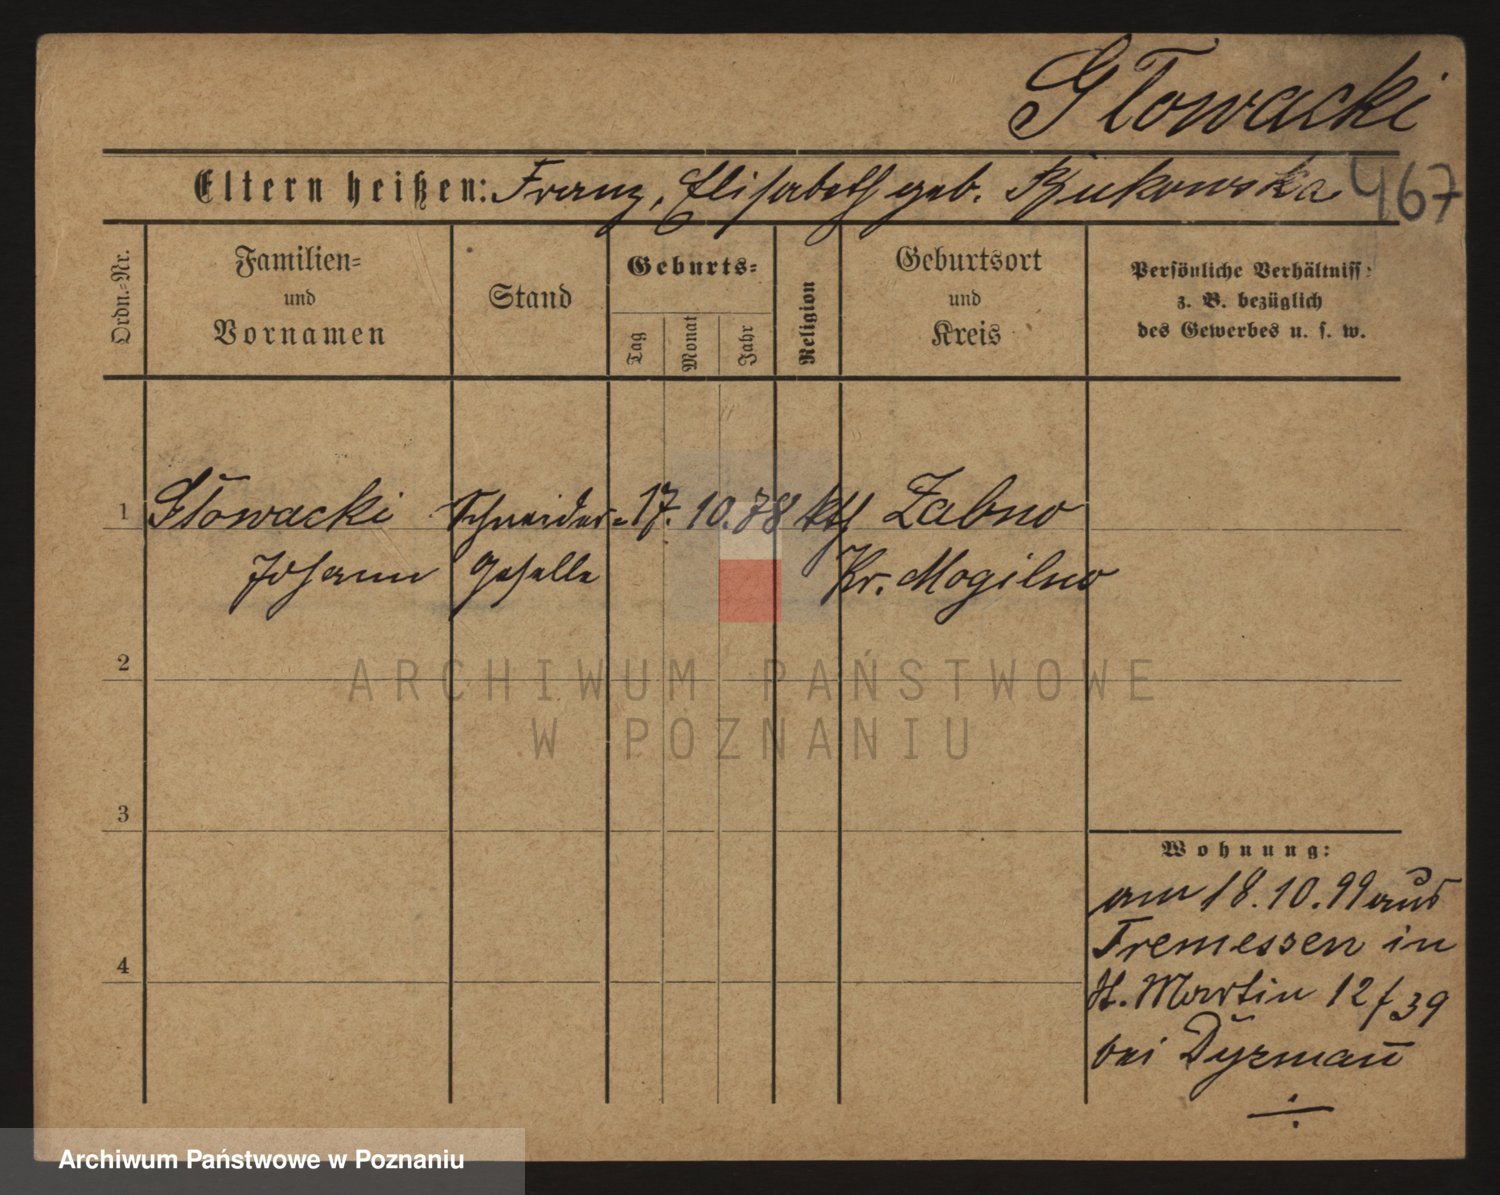 Głowacki
Eltern heißen: Franz, Elisabeth geb. Bukowska
467
Ordn.=Nr.
Familien=
und
Vornamen
Stand
Geburts=
Tag
Monat
Jahr
Religion
Geburtsort
und
Kreis
Persönliche Verhältniss:
z. B. bezüglich
des Gewerbes u. s. w.
1 Głowacki Schneider= 17. 10. 78 kth Żabno
Johann Geselle Kr. Mogilno
2
ARCHIWUM PAŃSTWOWE
W POZNANIU
3
Wohnung:
am 18.10.99 aus
Tremessen in
St. Martin 12/39
4
bei
Archiwum Państwowe w Poznaniu